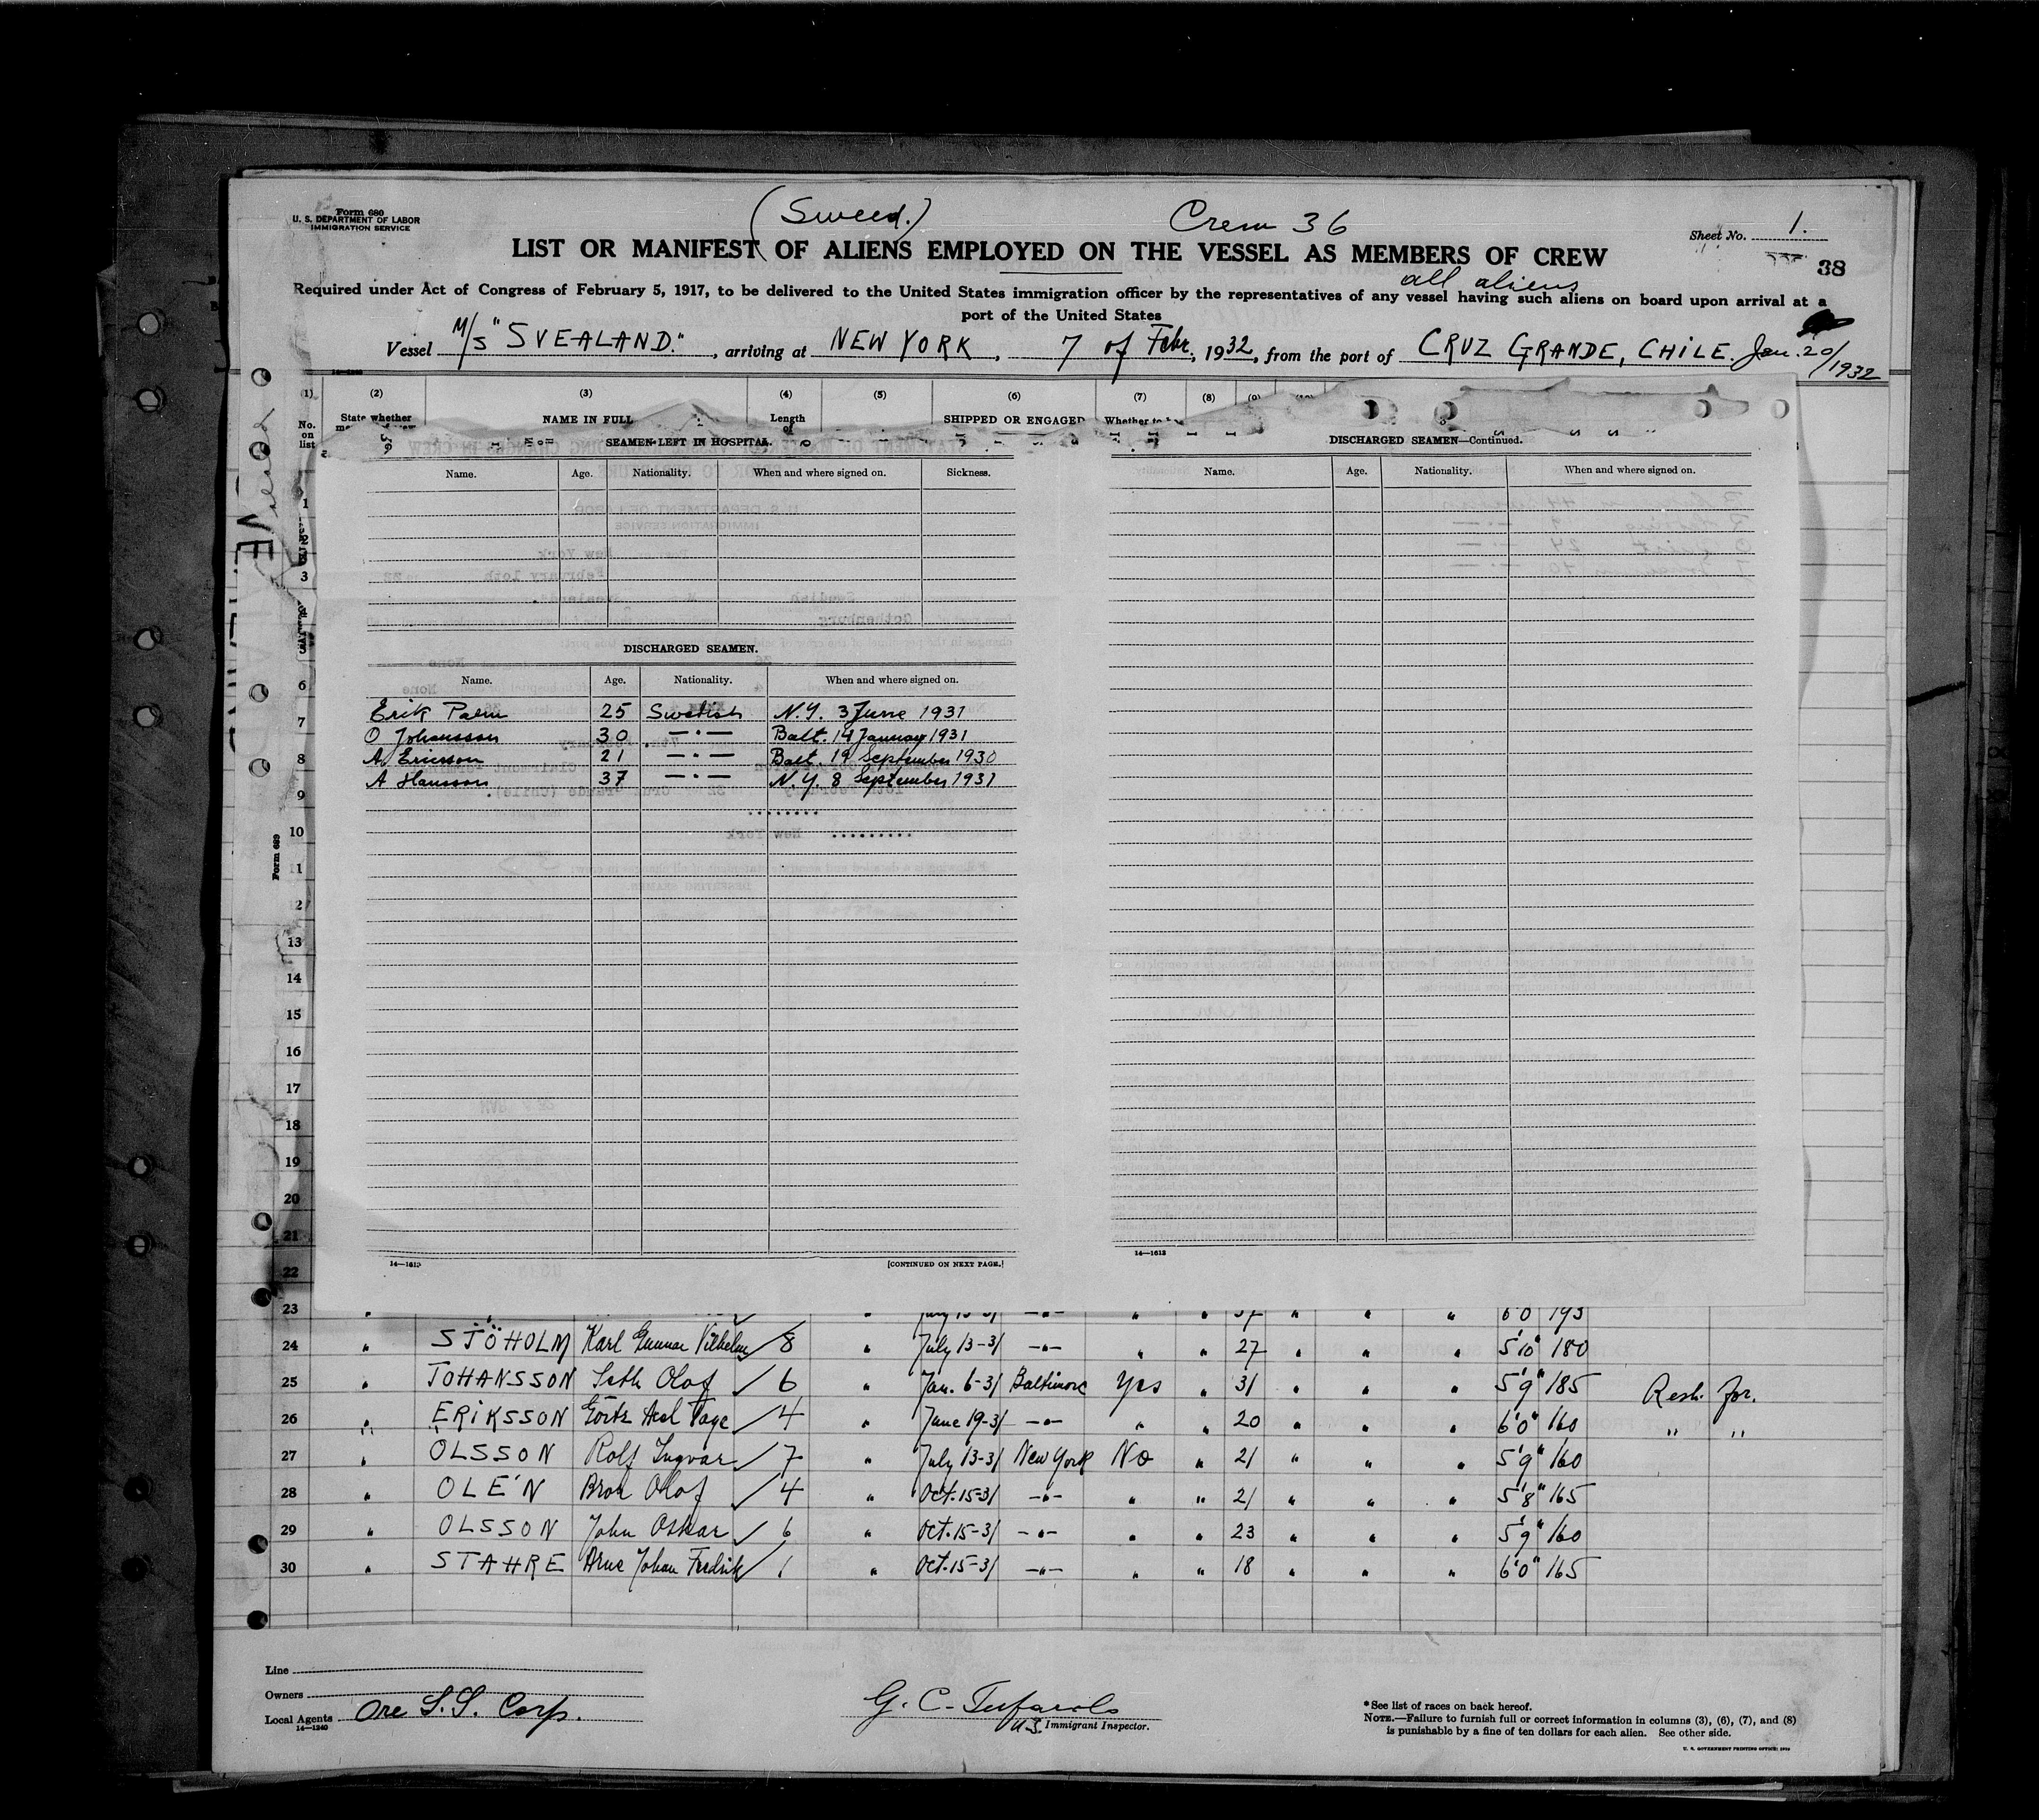 Form 680
U. S. DEPARTMENT OF LABOR
IMMIGRATION SERVICE
(Sweed.)
Crew 36
Sheet No. 1.
LIST OR MANIFEST OF ALIENS EMPLOYED ON THE VESSEL AS MEMBERS OF CREW
38
all aliens
Required under Act of Congress of February 5, 1917, to be delivered to the United States immigration officer by the representatives of any vessel having such aliens on board upon arrival at a
port of the United States
Vessel M/S "SVEALAND." , arriving at NEW YORK , 7 of Febr. , 1932, from the port of CRUZ GRANDE, CHILE. Jan. 20/1932
(1) (2) (3) (4) (5) (6) (7) (8)
No. on list State whether NAME IN FULL Length of SHIPPED OR ENGAGED Whether to be
SEAMEN LEFT IN HOSPITAL.
Name. Age. Nationality. When and where signed on. Sickness.
DISCHARGED SEAMEN.
Name. Age. Nationality. When and where signed on.
Erik Palm 25 Swedish N.Y. 3 June 1931
O Johansson 30 —·— Balt. 14 January 1931
A Ericsson 21 —·— Balt. 19 September 1930
A Hansson 37 —·— N.Y. 8 September 1931
14—1613 [CONTINUED ON NEXT PAGE.]
DISCHARGED SEAMEN—Continued.
Name. Age. Nationality. When and where signed on.
14—1613
1
3
6
7
8
9
10
11
12
13
14
15
16
17
18
19
20
21
22
Form 689
23 " July 13-31 —"— " " 37 " " " 6'0 193
24 " SJÖHOLM Karl Gunnar Vilhelm ✓ 8 " July 13-31 —"— " " 27 " " " 5'10" 180
25 " JOHANSSON Seth Olof ✓ 6 " Jan. 6-31 Baltimore Yes " 31 " " " 5'9" 185 Resh. for.
26 " ERIKSSON Axel Tage ✓ 4 " June 19-31 —"— " " 20 " " " 6'0" 160 " "
27 " OLSSON Rolf Ingvar ✓ 7 " July 13-31 New York No " 21 " " " 5'9" 160
28 " OLÉN Olof ✓ 4 " Oct. 15-31 —"— " " 21 " " " 5'8" 165
29 " OLSSON John Oskar ✓ 6 " Oct. 15-31 —"— " " 23 " " " 5'9" 160
30 " STAHRE Arne Johan Fredrik ✓ 1 " Oct. 15-31 —"— " " 18 " " " 6'0" 165
Line
Owners
Local Agents Ore S.S. Corp.
14—1240
G. C. Immigrant Inspector.
*See list of races on back hereof.
NOTE.—Failure to furnish full or correct information in columns (3), (6), (7), and (8)
is punishable by a fine of ten dollars for each alien. See other side.
U. S. GOVERNMENT PRINTING OFFICE: